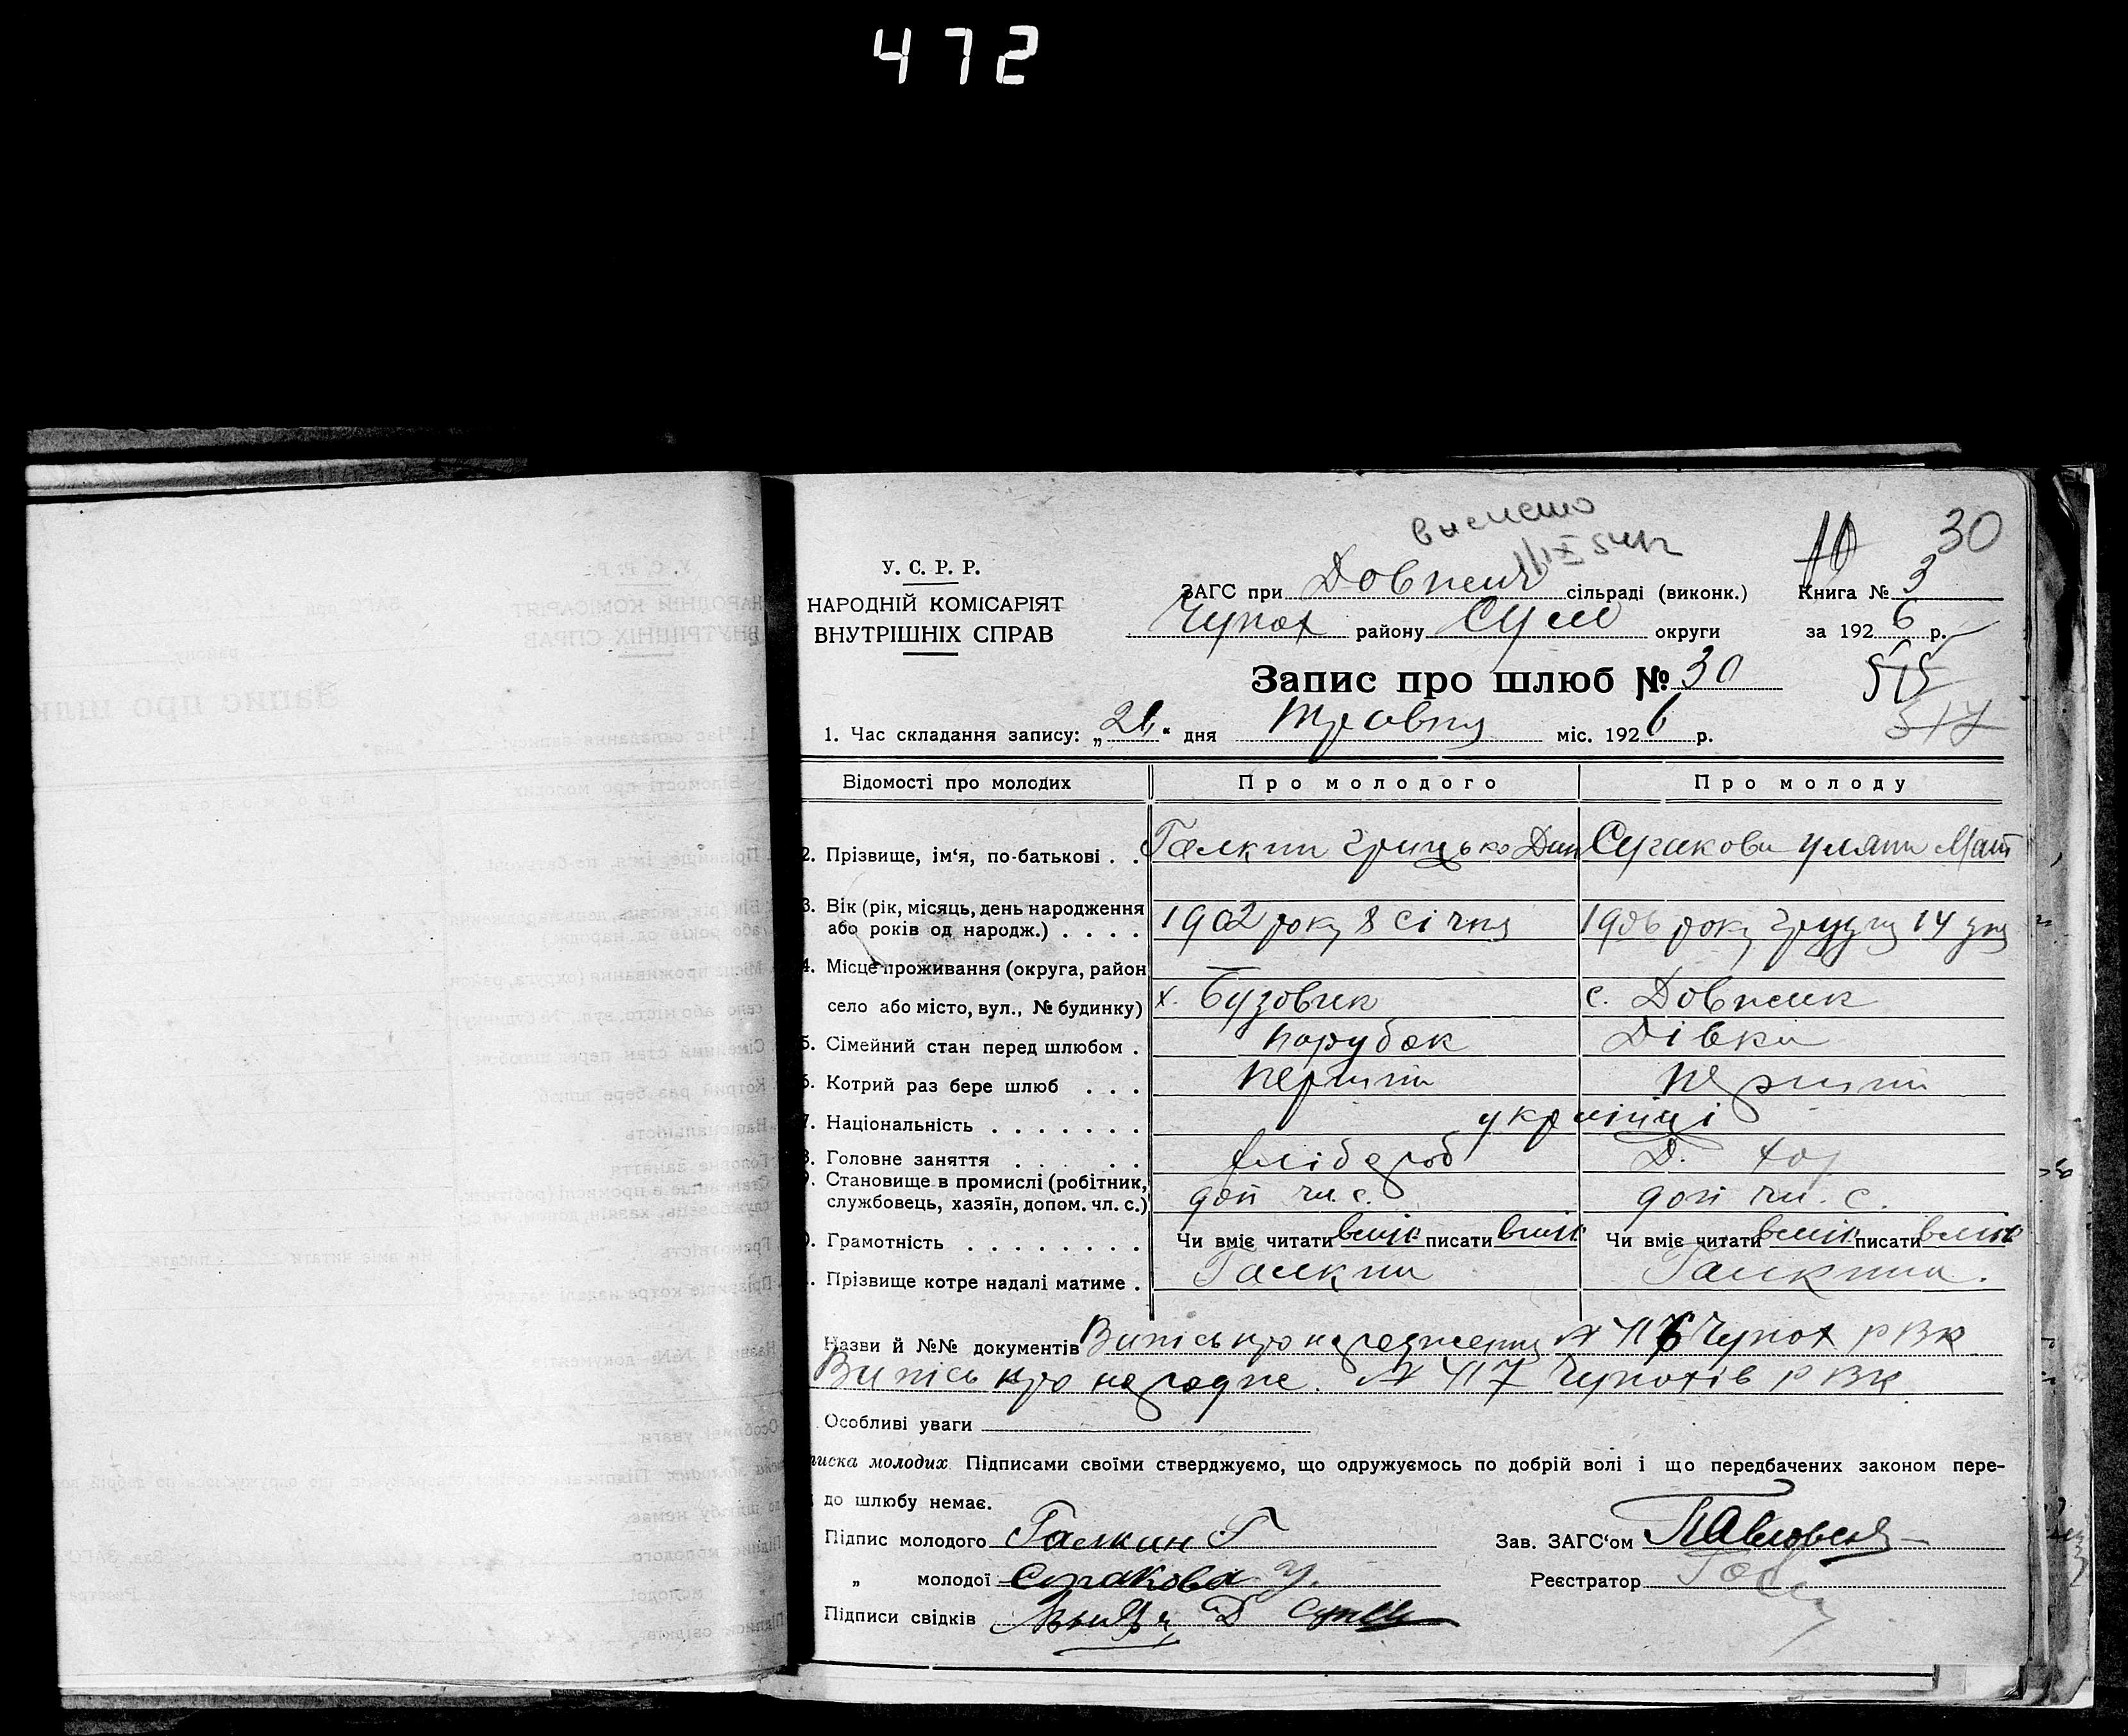 472
30
У. С. Р. Р.
НАРОДНІЙ КОМІСАРІЯТ
ВНУТРІШНІХ СПРАВ
ЗАГС при Довжич сільраді (виконк.) Книга № 3
Чупах району Сум округи за 1926 р.
Запис про шлюб № 30
515
517
1. Час складання запису: „21“ дня Травня міс. 1926 р.
Відомості про молодих Про молодого Про молоду
2. Прізвище, ім‘я, по-батькові . . Галкин Грицько Дан Сугакова Уляна Мат
3. Вік (рік, місяць, день народження
або років од народж.) . . . . 1902 року 8 січня 1906 року грудня 14 дня
4. Місце проживання (округа, район
село або місто, вул., № будинку) х. Бузовик с. Довжик
5. Сімейний стан перед шлюбом . парубок Дівка
6. Котрий раз бере шлюб . . . перший перший
7. Національність . . . . . . . українці
8. Головне заняття . . . . . хлібороб Д. хаз
9. Становище в промислі (робітник,
службовець, хазяїн, допом. чл. с.) доп чл. с. доп чл. с.
0. Грамотність . . . . . . . . Чи вміє читати вміє писати вміє Чи вміє читати вміє писати вміє
Прізвище котре надалі матиме . Галкин Галкина.
Назви й №№ документів Випісь про народження № 416 Чупах РВК
Випісь про народже. № 417 Чупахів РВК
Особливі уваги
писка молодих. Підписами своїми стверджуємо, що одружуємось по добрій волі і що передбачених законом пере-
до шлюбу немає.
Підпис молодого Галкин Г Зав. ЗАГС‘ом
„ молодої Сугакова У. Реєстратор
Підписи свідків